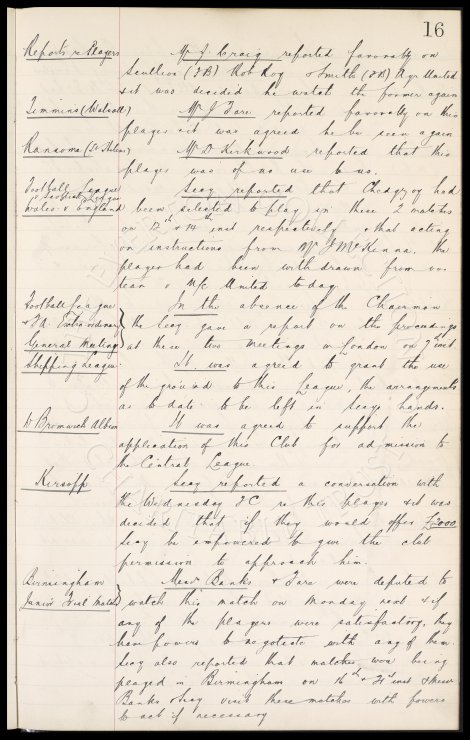 16
Reports re Players Mr J. Craig reported favorably on
Scullion (IB) Rob Roy & Smith (IB) Ayr United
& it was decided he watch the former again
Timmins (Walsall) Mr J Fare reported favorably on this
player & it was agreed he be seen again
Ransome (St Helens) Mr D Kirkwood reported that this
player was of no use to us.
Football League Secy reported that Chedgzoy had
v Scottish League
Wales v England been selected to play in these 2 matches
on 12th & 14th inst respectively & that acting
on instructions from Mr J McKenna. the
player had been withdrawn from our
team v M/c United today.
Football League In the absence of the Chairman
& FA Extraordinary the Secy gave a report on the proceedings
General Meeting at these two meetings in London on 7th inst
Shipping League It was agreed to grant the use
of the ground to this League, the arrangements
as to date to be left in Secys hands.
W Bromwich Albion It was agreed to support the
application of this Club for admission to
the Central League.
Kirsopp Secy reported a conversation with
the Wednesday FC re this player & it was
decided that if they would offer £2000
Secy be empowered to give the club
permission to approach him.
Birmingham Messrs Banks & Fare were deputed to
Junior Trial Match watch this match on Monday next & if
any of the players were satisfactory, they
have powers to negotiate with any of them.
Secy also reported that matches were being
played in Birmingham on 16th & 21st inst & Messrs
Banks & Secy visit these matches with powers
to act if necessary